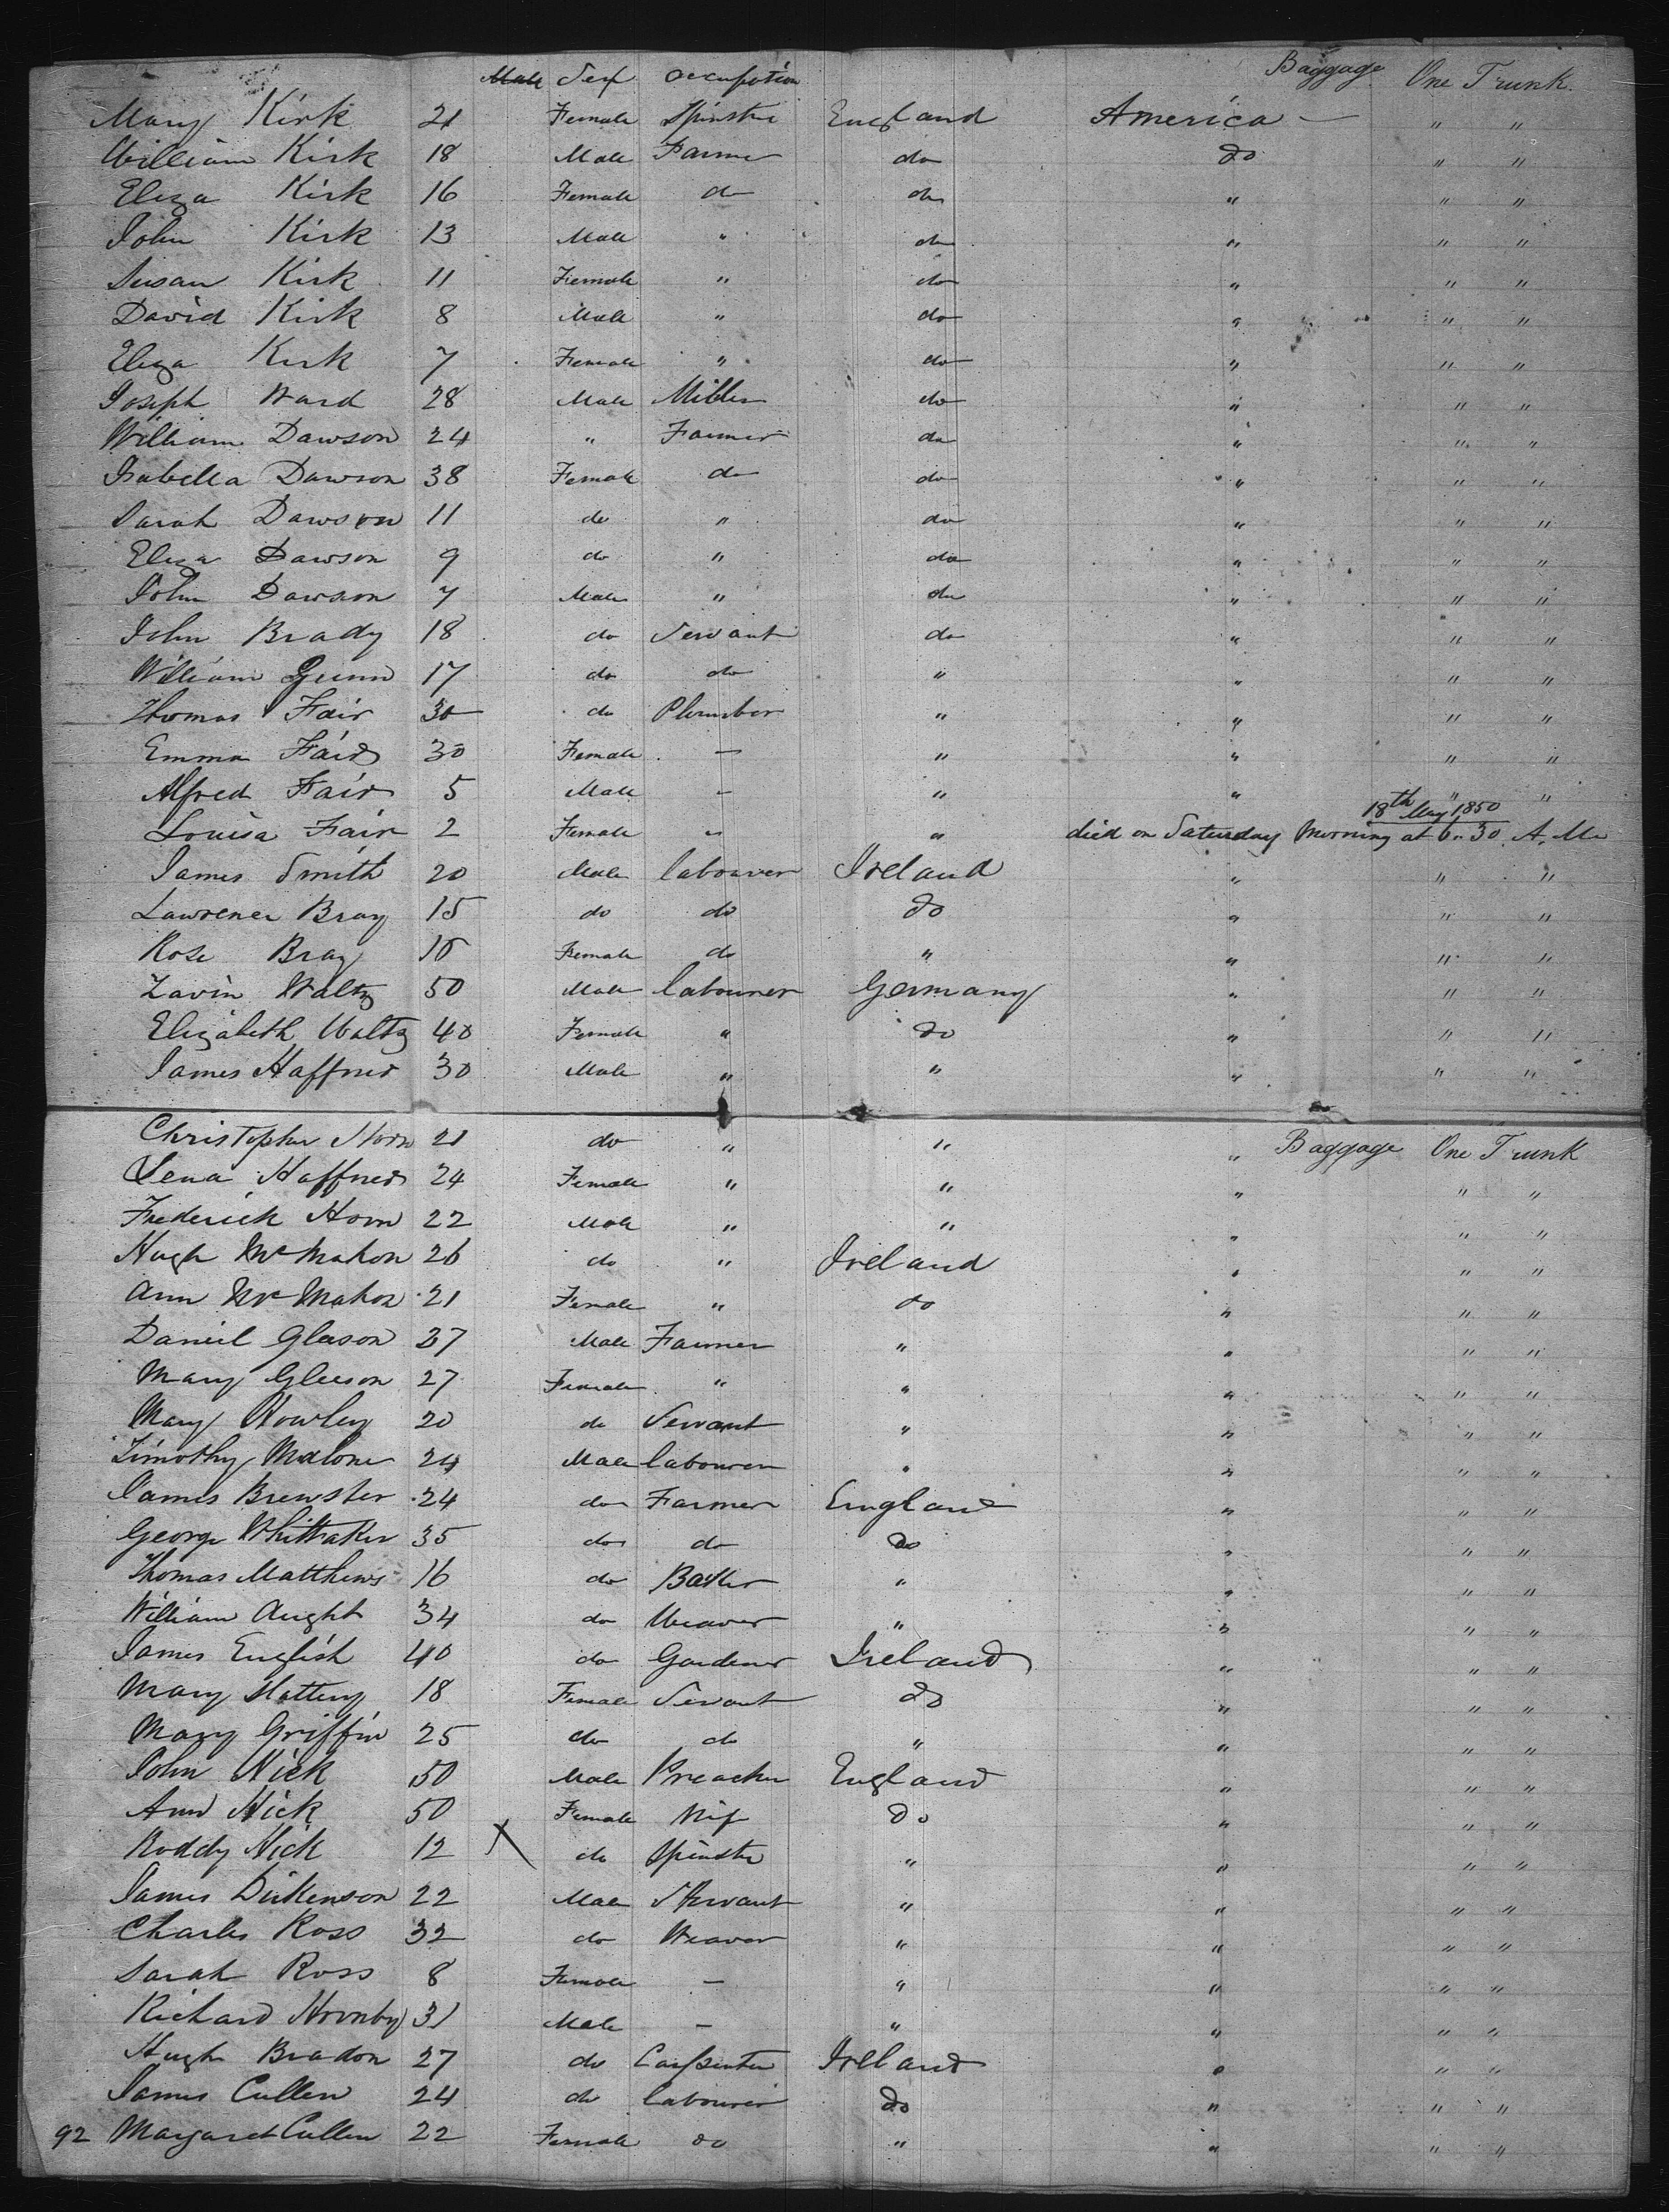 Male Sex Occupation Baggage One Trunk
Mary Kirk 21 Female Spinster England America — " "
William Kirk 18 Male Farmer do do " "
Eliza Kirk 16 Female do do " " "
John Kirk 13 Male " do " " "
Susan Kirk 11 Female " do " " "
David Kirk 8 Male " do " " "
Eliza Kirk 7 Female " do " " "
Joseph Ward 28 Male Miller do " " "
William Dawson 24 " Farmer do " " "
Isabella Dawson 38 Female do do " " "
Sarah Dawson 11 do " do " " "
Eliza Dawson 9 do " do " " "
John Dawson 7 Male " do " " "
John Brady 18 do Servant do " " "
William 17 do do " " " "
Thomas Fair 30 do Plumber " " " "
Emma Fair 30 Female — " " " "
Alfred Fair 5 Male — " " " "
18th May 1850
Louisa Fair 2 Female " " died on Saturday Morning at 6.30. A.M.
James Smith 20 Male labourer Ireland " " "
Lawrence Bray 15 do do do " " "
Rose Bray Female do " " " "
Waltz 50 Male labourer Germany " " "
Elizabeth Waltz 40 Female " do " " "
James Haffner 30 Male " " " " "
Christopher Horn 21 do " " " Baggage One Trunk
Lena Haffner 24 Female " " " " "
Frederick Horn 22 Male " " " " "
Hugh McMahon 26 do " Ireland " " "
Ann McMahon 21 Female " do " " "
Daniel Gleason Male Farmer " " " "
Mary Gleeson 27 Female " " " " "
Mary Howley 20 do Servant " " " "
Timothy Malone 24 Male labourer " " " "
James Brewster 24 do Farmer England " " "
George Whittaker 35 do do do " " "
Thomas Matthews 16 do " " " "
William Aught 34 do Weaver " " " "
James English 40 do Gardener Ireland " " "
Mary Slattery 18 Female Servant do " " "
Mary Griffin 25 do do " " " "
John Hick 50 Male Preacher England " " "
Ann Hick 50 Female Wif do " " "
Roddy Hick 12 X do Spinster " " " "
James Dickenson 22 Male Servant " " " "
Charles Ross 32 do Weaver " " " "
Sarah Ross 8 Female — " " " "
Richard Hornby 31 Male — " " " "
Hugh Bradon 27 do Carpenter Ireland " " "
James Cullen 24 do labourer do " " "
92 Margaret Cullen 22 Female do " " " "